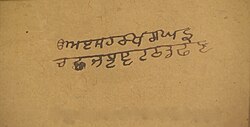 ੳਅੲਸਹਕਖਗਘਙ
ਚਛਜਝਞਟਠਡਢਣ